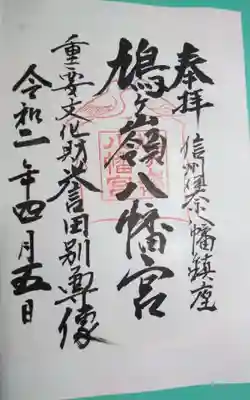 奉拝
信州伊那八幡鎮座
鳩ヶ嶺八幡宮
重要文化財誉田別尊像
令和二年四月五日